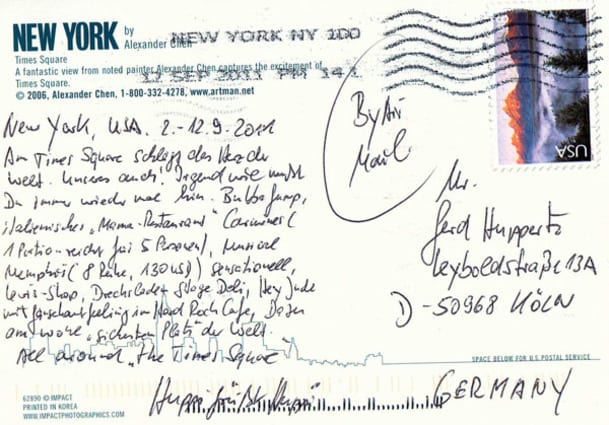 NEW YORK by
Alexander Chen
Times Square
A fantastic view from noted painter Alexander Chen captures the excitement of
Times Square.
© 2006, Alexander Chen, 1-800-332-4278, www.artman.net
NEW YORK NY 100
12 SEP 2011 PM 14 L
USA
By Air
Mail
New York, USA. 2.-12.9.2011
Am Times Square schlägt das Herz der
Welt. Unseres auch! Irgendwie mußt
Du immer wieder mal hin. Bubba Gump,
italienisches „Mama-Restaurant" Carmines (
1 Portion reicht für 5 Personen), Musical
Memphis (8 Reihe, 130 USD) sensationell,
Levis-Shop, Stage Deli, Hey Jude
mit im Hard Rock Cafe,
am wohl „sichersten Platz der Welt.
All around „the Times Square
Mr.
Gerd Huppertz
Leyboldstraße 13A
D-50968 KÖLN
GERMANY
SPACE BELOW FOR U.S. POSTAL SERVICE
62890 © IMPACT
PRINTED IN KOREA
WWW.IMPACTPHOTOGRAPHICS.COM